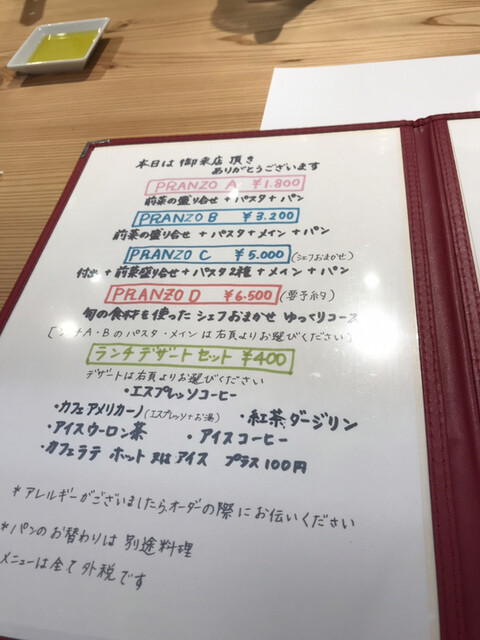 本日は御来店頂き
ありがとうございます
PRANZO A ¥1.800
前菜の盛り合せ + パスタ + パン
PRANZO B ¥3.200
前菜の盛り合せ + パスタ + メイン + パン
PRANZO C ¥5.000 (シェフおまかせ)
付出し + 前菜盛り合せ + パスタ2種 + メイン + パン
PRANZO D ¥6.500 (要予約)
旬の食材を使った シェフおまかせ ゆっくりコース
[ランチA・Bのパスタ・メインは右頁よりお選びください]
ランチデザートセット ¥400
デザートは右頁よりお選びください
・エスプレッソコーヒー
・カフェアメリカーノ(エスプレッソ+お湯) ・紅茶、ダージリン
・アイスウーロン茶 ・アイスコーヒー
・カフェラテ ホット又はアイス プラス100円
*アレルギーがございましたら、オーダーの際にお伝いください
*パンのお替わりは 別途料理
メニューは全て外税です